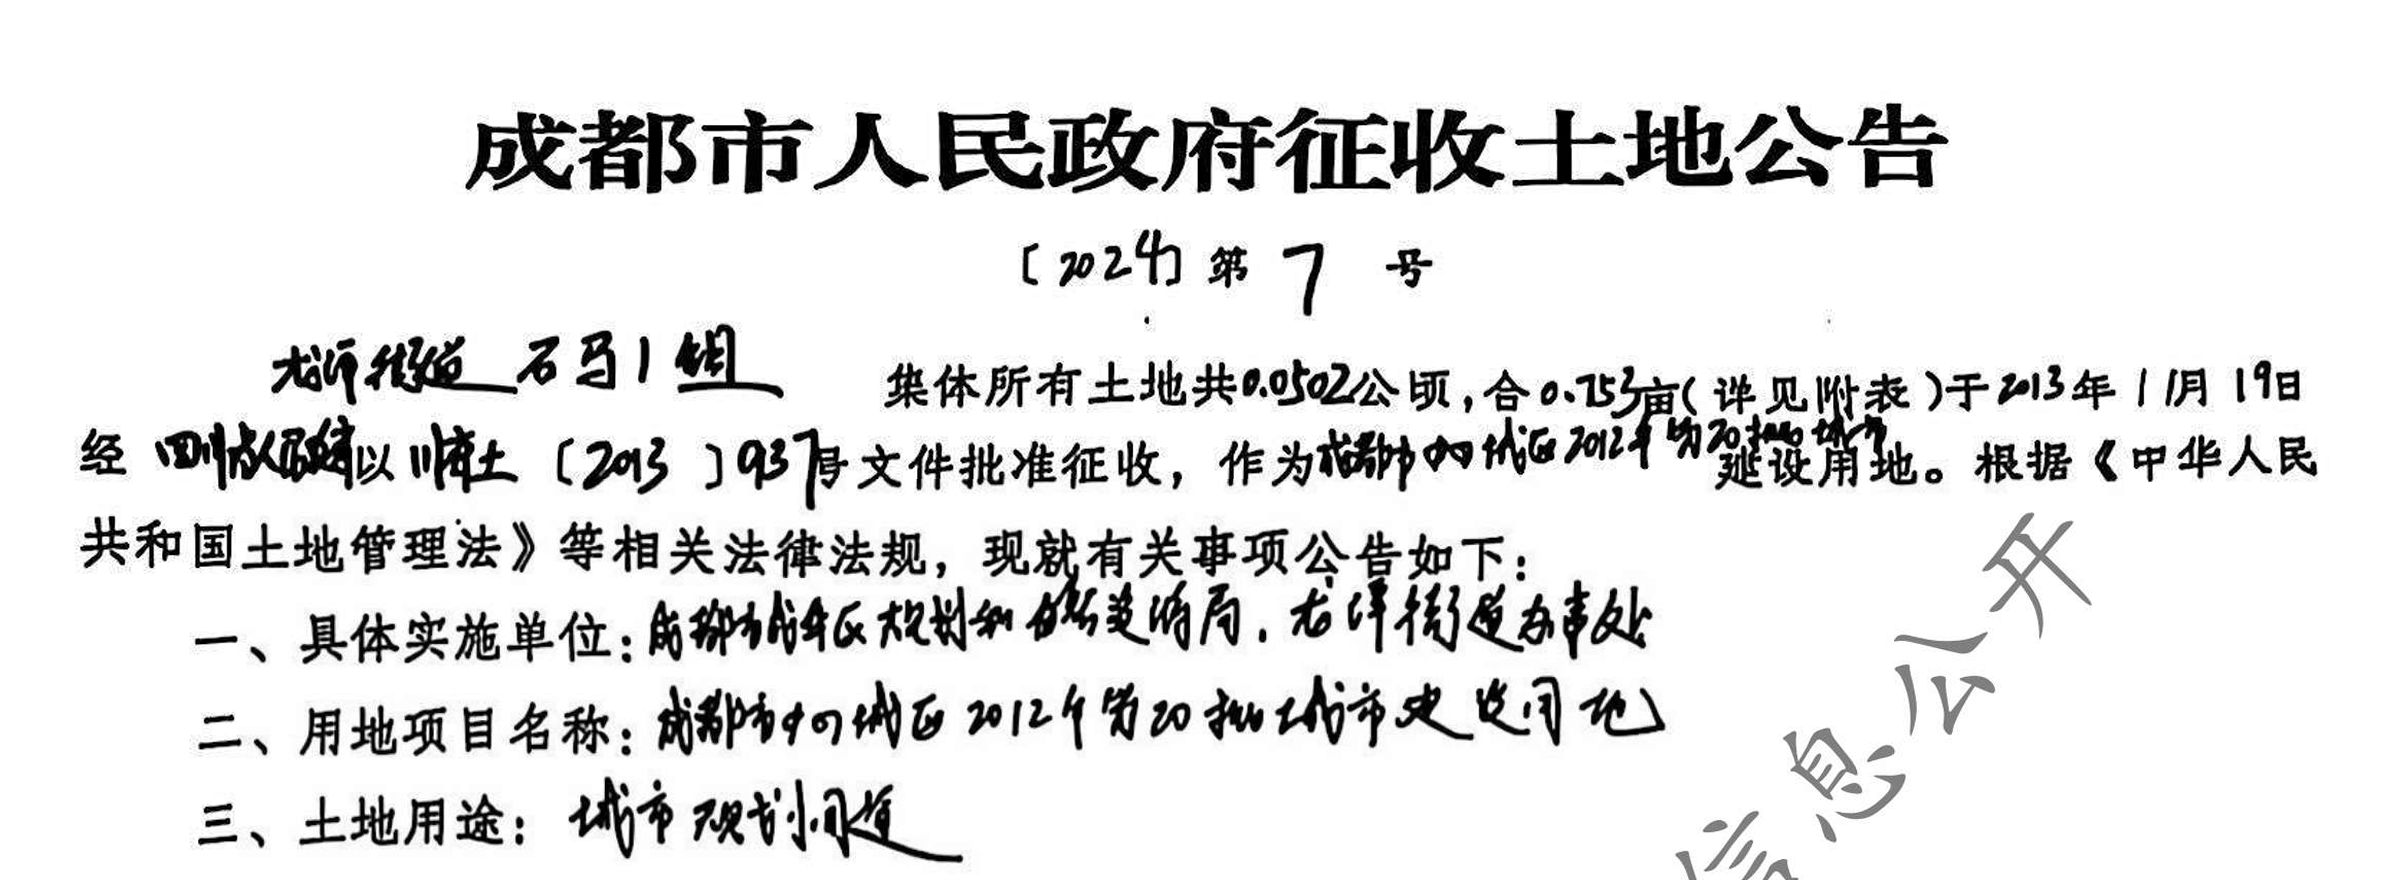 成都市人民政府征收土地公告
〔2024〕第 7 号
龙潭街道 石马1组 集体所有土地共0.0502公顷，合0.753亩（详见附表）于2013年11月19日
经 四川省人民政府以川府土〔2013〕937号文件批准征收，作为成都市中心城区2012年第20批城市建设用地。根据《中华人民
共和国土地管理法》等相关法律法规，现就有关事项公告如下：
一、具体实施单位：成都市成华区规划和自然资源局、龙潭街道办事处
二、用地项目名称：成都市中心城区2012年第20批城市建设用地
三、土地用途：城市规划用途
信息公开